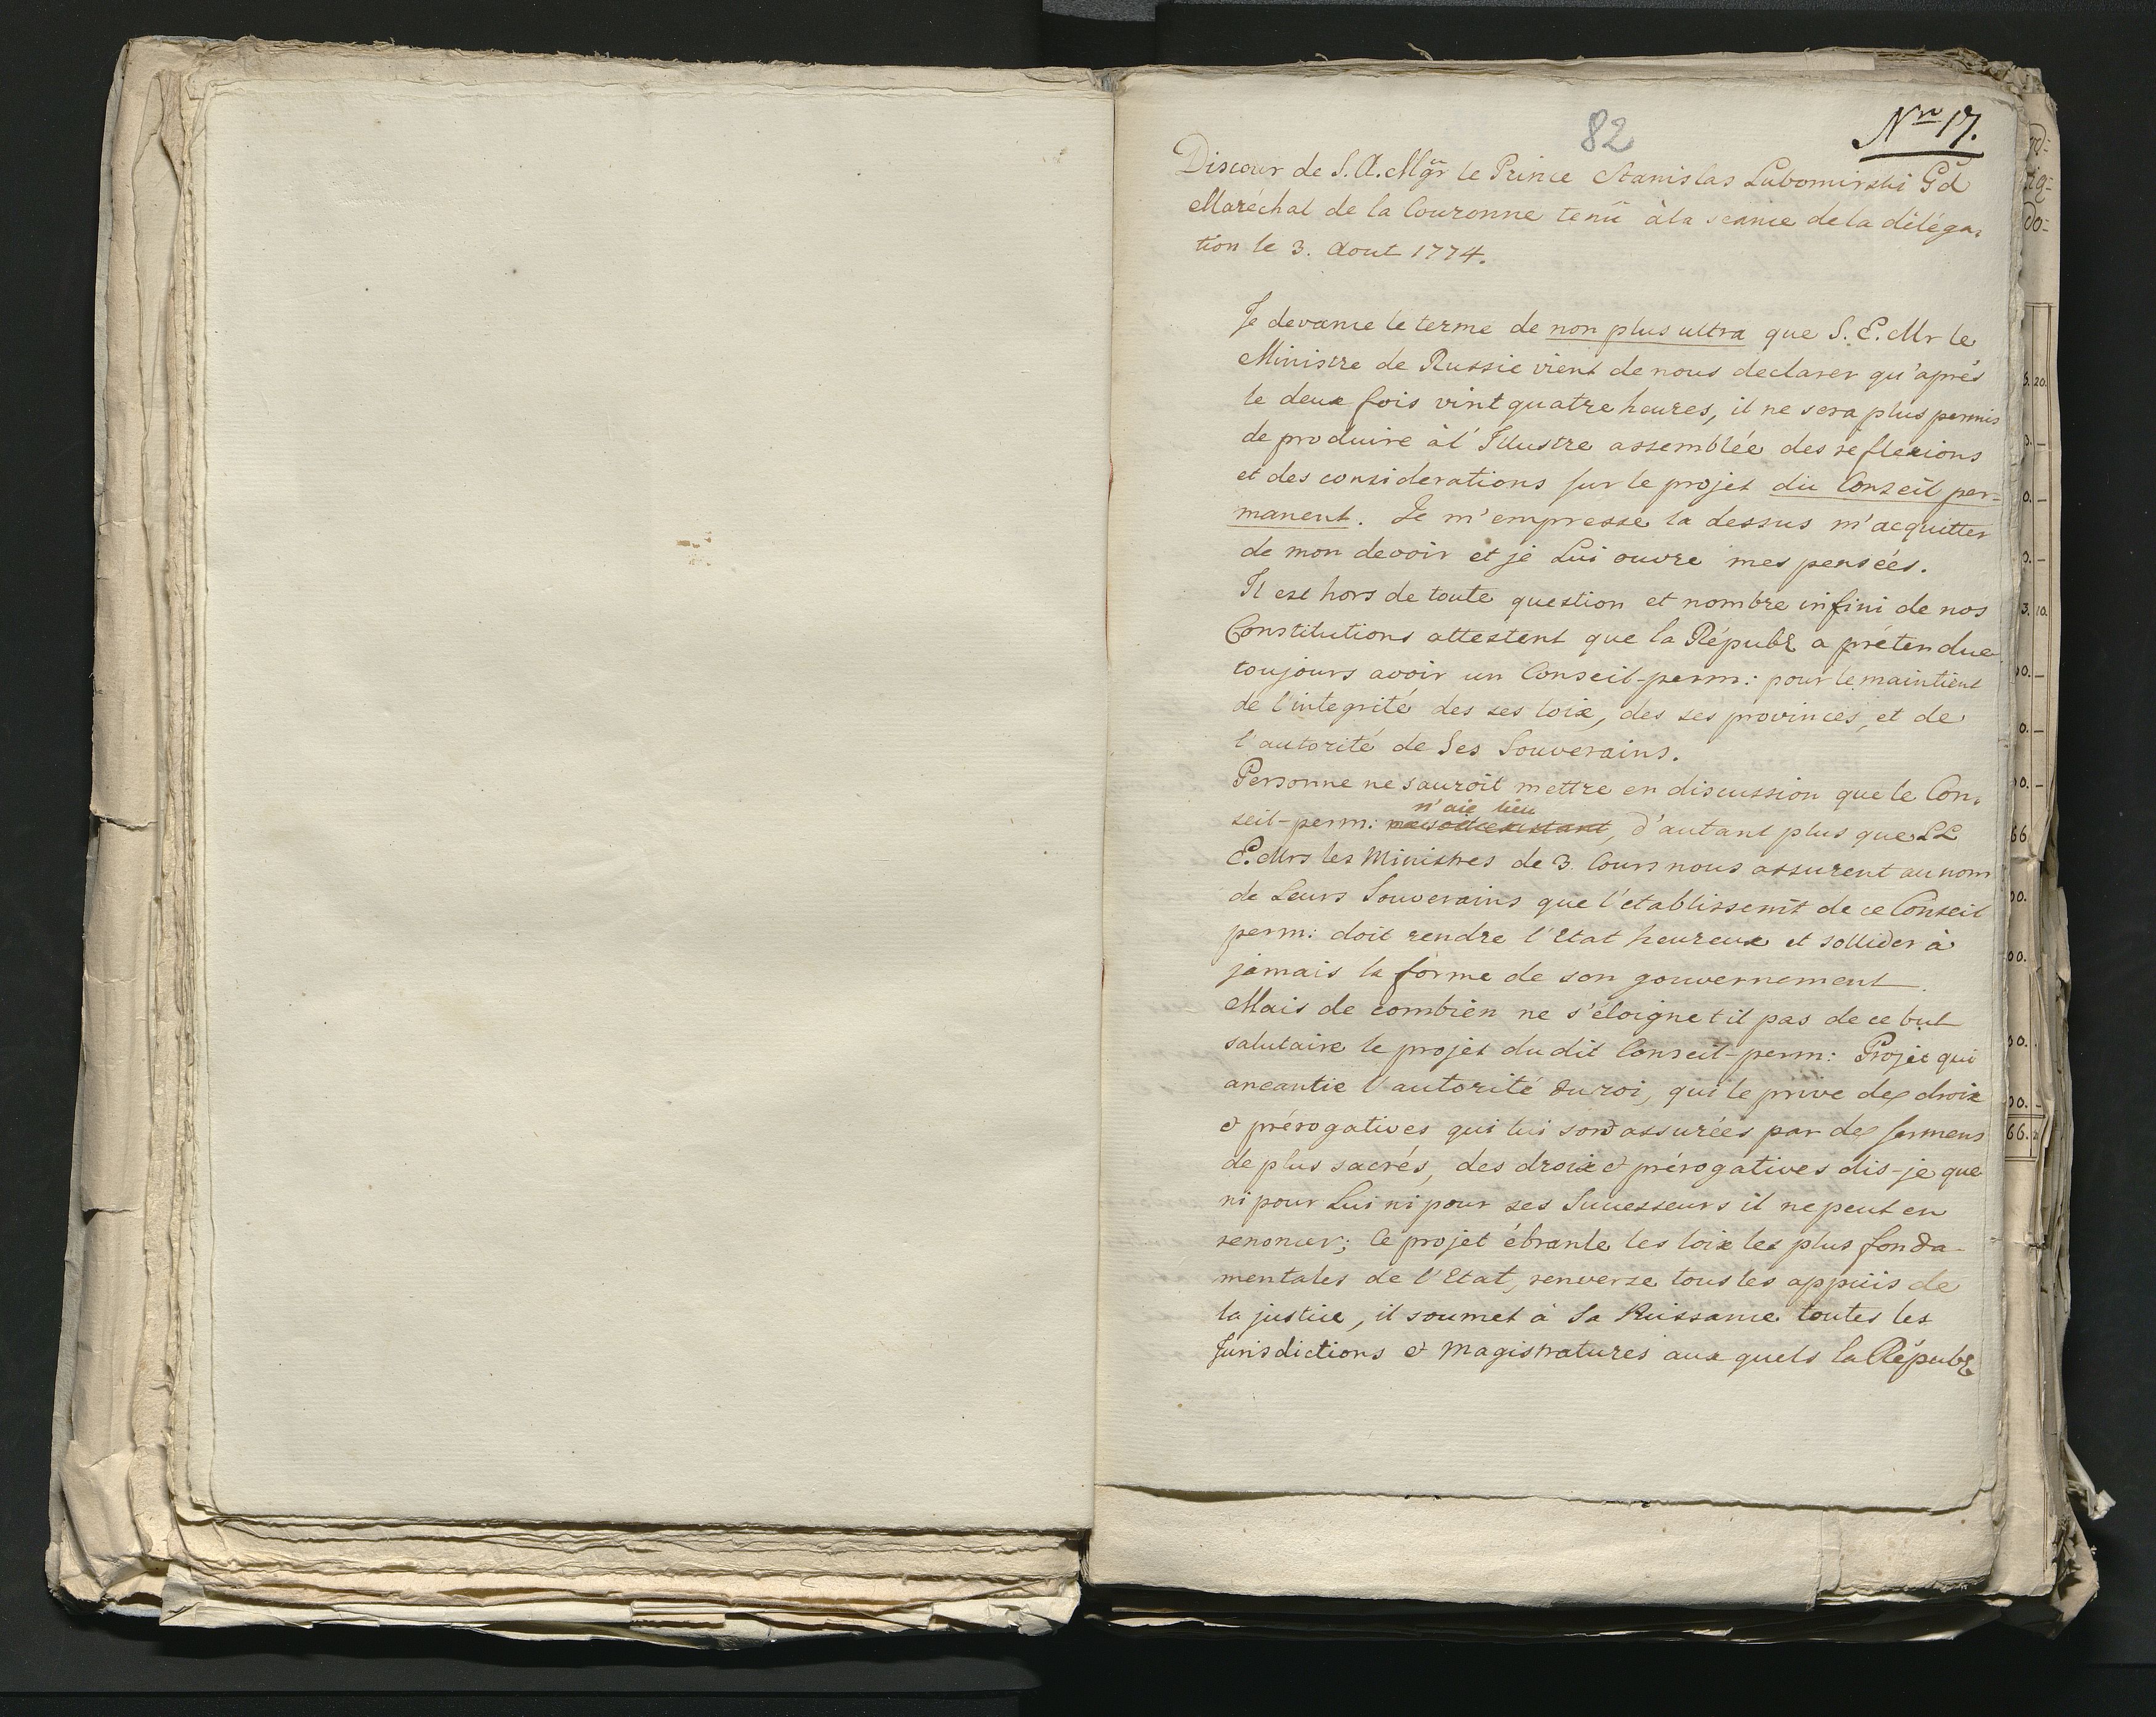 82
Nro 17.
Discour de S. A. Mgr le Prince Stanislas Lubomirski Gd
Maréchal de la Couronne tenû à la seance de la déléga,
tion le 3. Aout 1774.
Je devance le terme de non plus ultra que S. E. Mr le
Ministre de Russie vient de nous declarer qu'aprés
le deux fois vint quatre heures, il ne sera plus permis
de produire à l'Illustre assemblée des reflexions
et des considerations sur le projet du Conseil per-
manent. Je m'empresse la dessus m'acquitter
de mon devoir et je Lui ouvre mes pensées.
Il est hors de toute question et nombre infini de nos
Constitutions attestent que la Républ a prétendue
toujours avoir un Conseil-perm: pour le maintient
de l'integrité des ses loix, des ses provinces, et de
l'autorité de Ses Souverains.
Personne ne sauroit mettre en discussion que le Con,
n'aie lieu
seil-perm: ne soit existant, d'autant plus que LL
E. Mrs les Ministres de 3. Cours nous assurent au nom
de Leurs Souverains que l'etablissemt de ce Conseil
perm: doit rendre l'Etat heureux et sollider à
jamais la forme de son gouvernement.
Mais de combien ne s'éloigne t il pas de ce but
salutaire le projet du dit Conseil-perm: Projet qui
aneantie l'autorité du roi, qui le prive des droix
et prérogatives qui lui sont assurées par des sermens
de plus sacrés, des droix et prérogatives dis-je que
ni pour Lui ni pour ses Successeurs il ne peut en
renoncer; Ce projet ébranle les loix les plus fonda-
mentales de l'Etat, renverse tous les appuis de
la justice, il soumet à Sa Puissance toutes les
Jurisdictions et Magistratures aux quels la Républ